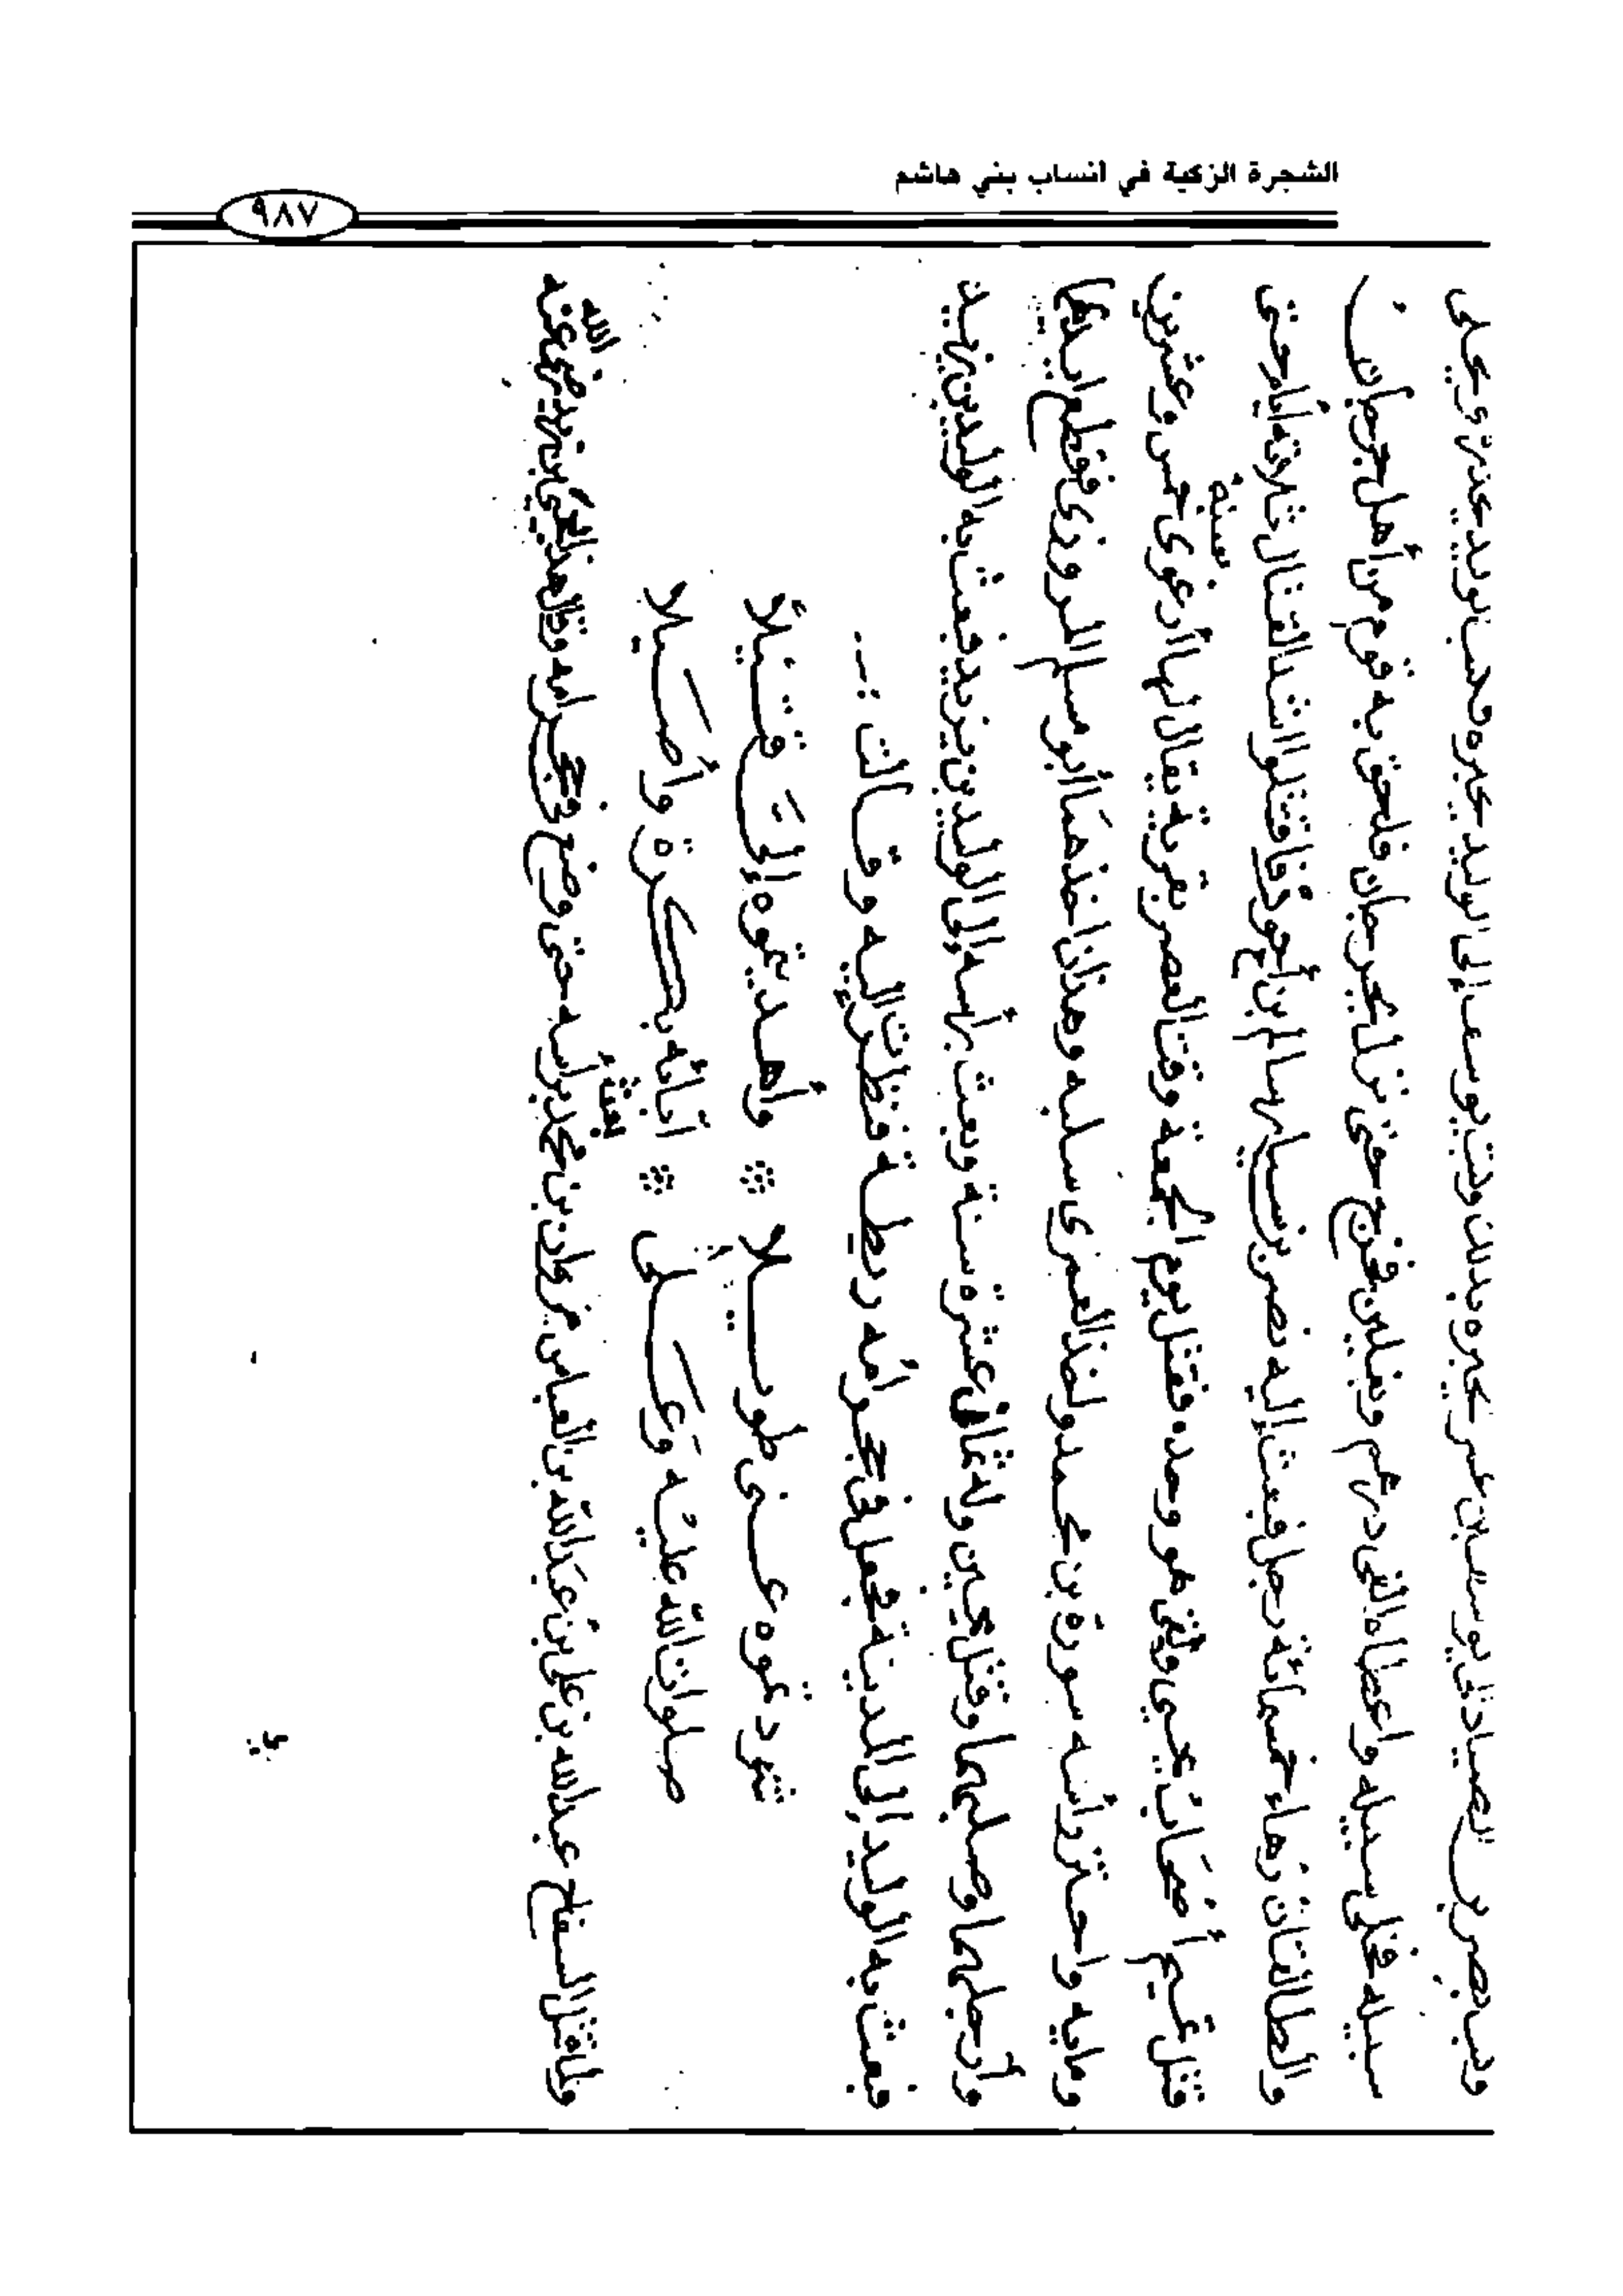 الشجرة الزكية في انساب بني هاشم
٩٨٧
إلى الوليد يخبره
سبيله فخلى سبيله واعطاه الفى درهم ونعلين فخرج حتى نزل الجوزجان فلحق به قوم من أهل جوزجان
والطالقان زهاء خمسمائة رجل فبعث إليه نصر بن سيار سالم بن أحور فاقتتلوا أشد القتال ثلاثة أيام حتى
قتل جميع أصحاب يحيى وبقى هو وحده فقتل يوم الجمعة وقت العصر بقرية يقال لها أرغوى سنة خمس وعشرين
ومايه واحتز رأسه سورة بن محمد واخذ العنزى سلبه وهذان أخذهما أبو مسلم المروزى فقطع ايديهما
وأرجلهما وصلبهما وقتل يحيى وله ثمانى عشرة سنة وبعث برأسه إلى الوليد بن يزيد فبعث به الوليد بن يزيد
فبعث به الوليد إلى المدينة فجعل فى حجر امه ريطة فنظرت إليه وقالت
شردتموه عنى طويلا * وأهديتموه إلىّ قتيلاً
صلوات الله عليه وعلى * آبائه بكرة وأصيلا
ولما قتل السفاح عبد الله بن على بن عبد الله بن العباس مروان بن محمد بعث برأسه حتى وضع فى حجر امه وقال هذا بيحيى بن زيد رضى الله عنه